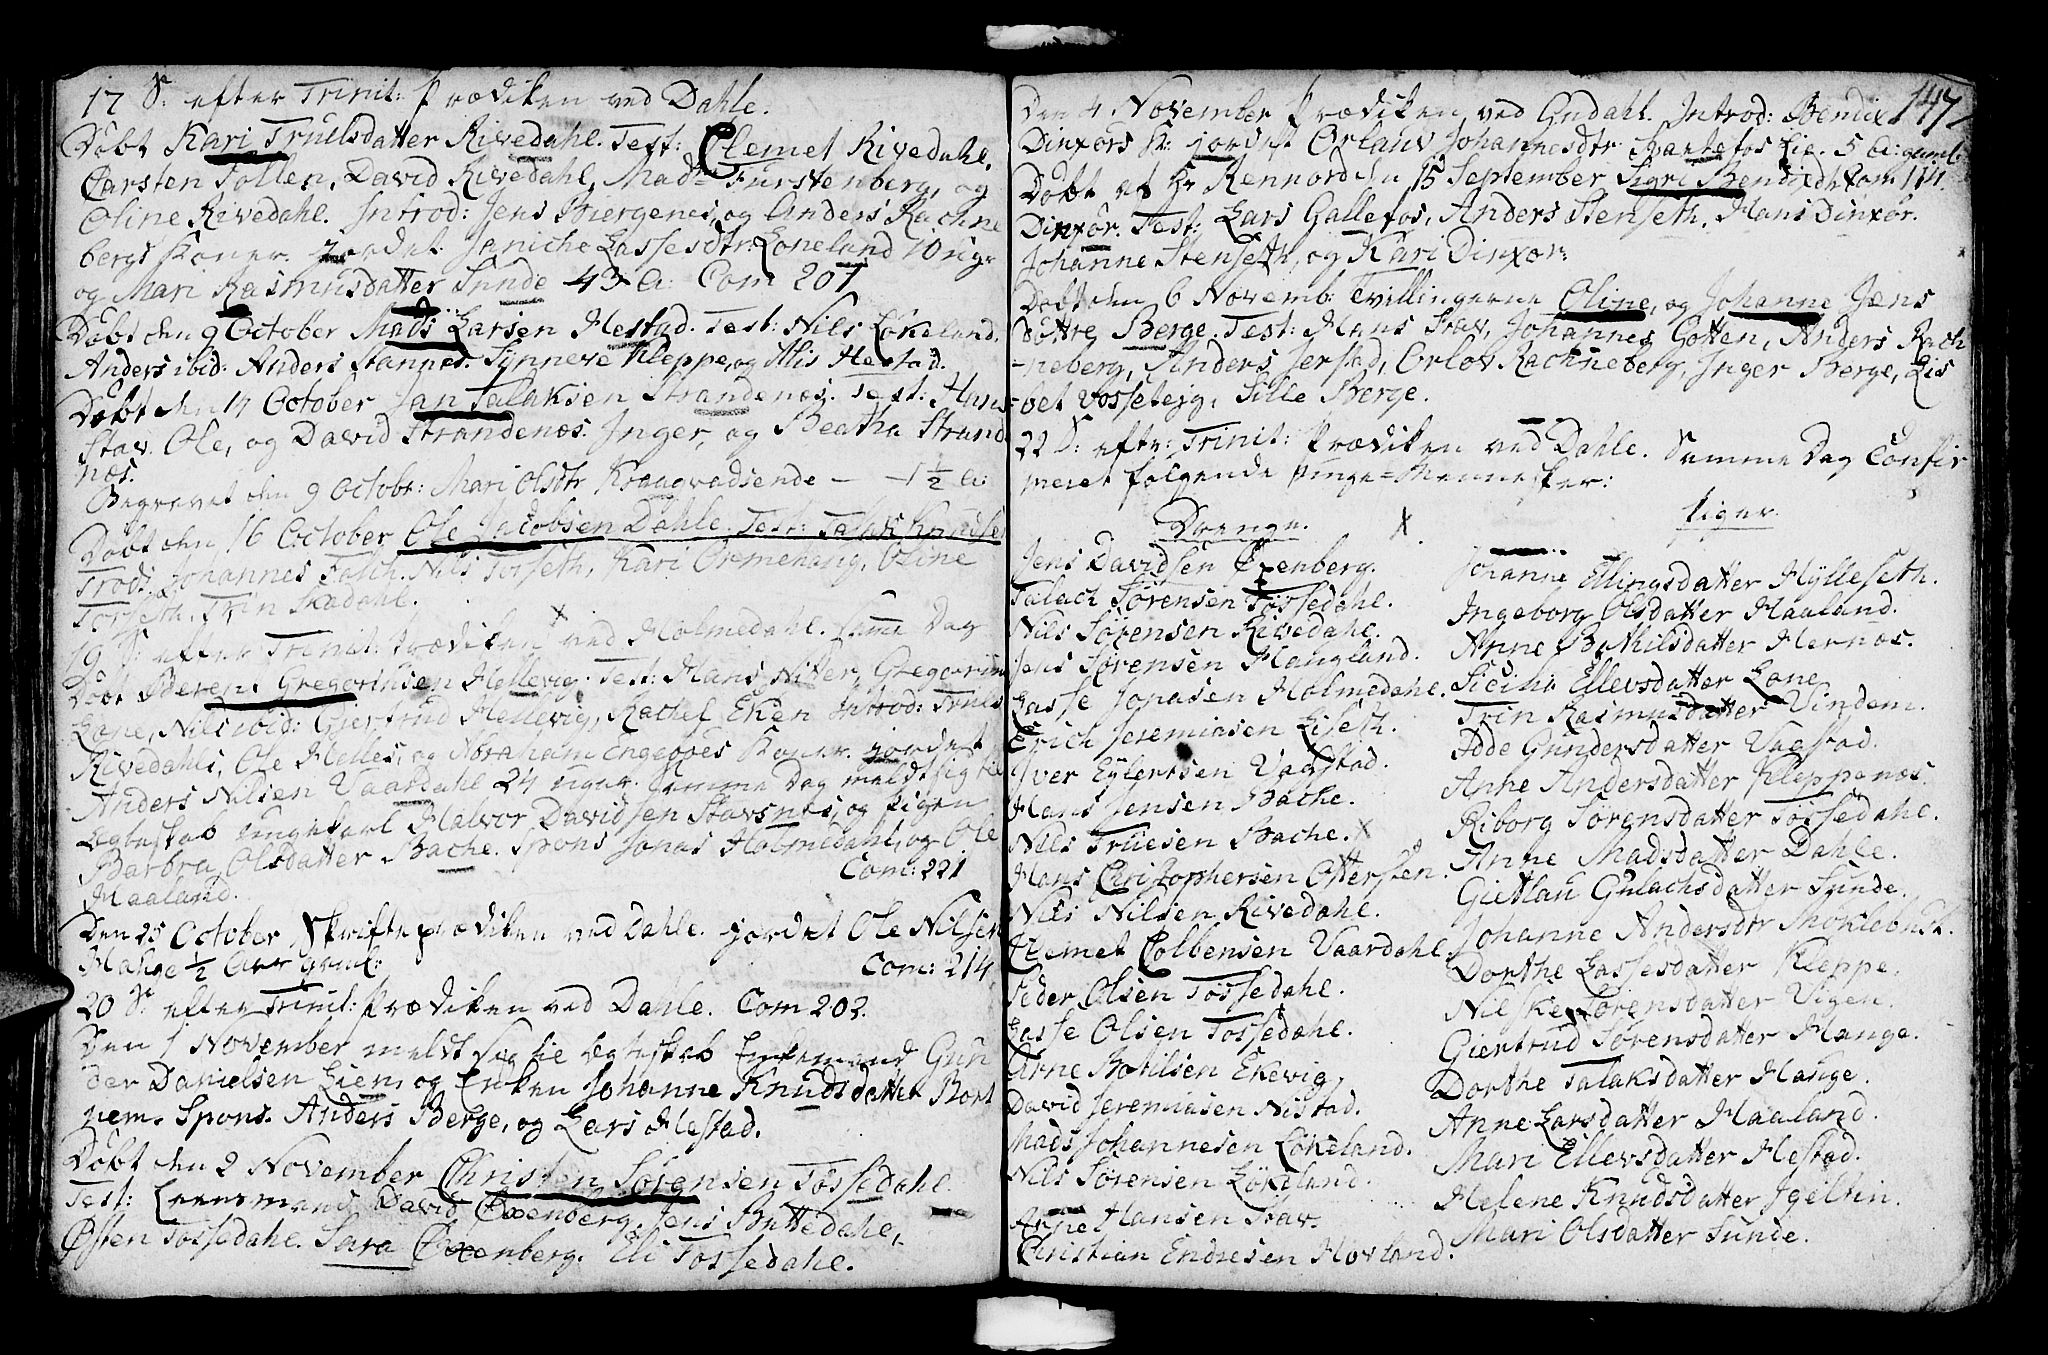 17 S: efter Trinit: Prædiken ved Dahle.
Döbt Kari Truelsdatter Rivedahl. Test: Clemet Rivedahl.
Carsten Tollen, David Rivedahl, Madme Fürstenberg, og
Oline Rivedahl. Introd: Jens Biergenes, og Anders Rachne
bergs Koner. jordet Jeniche Lassesdtr: Loneland 10 uger
og Mari Rasmusdatter Sunde 43 A: Com 207
Döbt den 9 October Mads Larsen Hestad. Test: Nils Lökeland.
Anders ibid: Anders Stannes. Synneve Kleppe, og Alis Hestad.
Döbt den 14 October Jan Salaksen Strandenæs. Test: Hans
Stav. Ole, og David Strandenæs. Inger, og Beatha Strand
næs.
Begravet den 9 Octobr: Mari Olsdtr Kraagvadsende — 1 ½ A:
Döbt den 16 October Ole Jacobsen Dahle. Test: Salak Knudsen
Johannes Falch. Nils Torseth, Kari Ormehaug, Oline
Torseth, Trin Skadahl.
19 S: efter Trinit: Prædiken ved Holmedahl. Samme Dag
Döbt Berent Gregoriusen Hellevig. Test: Hans Nitter, Gregorius
Lone, Nils ibid: Giertrud Hellevig, Rachel Eken Introd: Truels
Rivedahls, Ole Helles, og Abraham Engebøes Koner. jordet
Anders Nilsen Vaardahl 24 uger. Samme Dag meldt sig til
Egteskab ungekarl Halvor Davidsen Stavsnes, og Pigen
Barbra Olsdatter Bache. Spons Jonas Holmedahl, og Ole
Haaland. Com: 221
Den 25 October Skrifteprædiken ved Dahle. jordet Ole Nilsen
Hauge ½ Aar gml: Com: 214
20 S: efter Trinit: Prædiken ved Dahle. Com 203.
Den 1 November meldt sig til Egteskab Enkemand Gun
der Danielsen Lien, og Enken Johanne Knudsdatter Bort
nem. Spons. Anders Berge, og Lars Hestad.
Döbt den 2 November Christen Sörensen Tössedahl.
Test: Leensmand David Oxenberg, Jens Byttedahl,
Østen Tössedahl. Sara Oxenberg. Eli Tössedahl.
147
Den 4 November Prædiken ved Gndahl. Introd: Bendix
Dinxörs K: jordet Orlaus Johannesdtr Svartefos Lie. 5 A: gaml:
Döbt af Hr Rennord den 15 September Sigri Bendixdtr Com: 174
Dinxör. Test: Lars Gallefos, Anders Stenseth. Hans Dinxör.
Johanne Stenseth, og Kari Dinxör.
Döbt den 6 Novemb: Tvillingerne Oline, og Johanne Jens
döttre Berge. Test: Hans Stav, Johannes Gotten, Anders Rach
neberg, Sinders Jerstad, Orlov Rachneberg, Inger Berge, Lis
bet Vosseteig, Sille Berge.
22 S: eftr: Trinit: Prædiken ved Dahle. Samme Dag Confir
meret følgende unge Mennesker:
Drenge.
Jens Davidsen Oxenberg.
Salach Sörensen Tössedahl.
Nils Sörensen Rivedahl.
Jens Sörensen Haugland.
Lasse Jonasen Holmedahl.
Erich Jeremiasen Liseth.
Iver Eylertsen Vagstad.
Hans Jensen Bache.
Nils Truesen Bache.
Hans Christophersen Ottersten.
Nils Nilsen Rivedahl.
Clemet Colbensen Vaardahl.
Peder Olsen Tössedahl.
Lasse Olsen Tössedahl.
Arne Botilsen Ekevig
David Jeremiasen Nistad.
Mads Johannesen Lökeland.
Nils Sörensen Lökeland.
Arne Hansen Stav.
Christian Endresen Hovland.
Piger
Johanne Ellingsdatter Hylleseth.
Ingeborg Olsdatter Haaland.
Anne Bothilsdatter Hernæs.
Sicilia Ellevsdatter Lone
Trin Rasmusdatter Vindem.
Odde Gundersdatter Vagstad.
Anne Andersdatter Kleppenæs.
Riborg Sörensdatter Tössedahl.
Anne Madsdatter Dahle.
Gietlau Gulachsdatter Sunde.
Johanne Andersdtr Mökleböst.
Dorthe Lassesdatter Kleppe.
Nilske Sörensdatter Vigen.
Giertrud Sörensdatter Hauge.
Dorthe Salaksdatter Hauge.
Anne Larsdatter Haaland.
Mari Ellevsdatter Hestad.
Helene Knudsdatter Igeltin.
Mari Olsdatter Sunde.